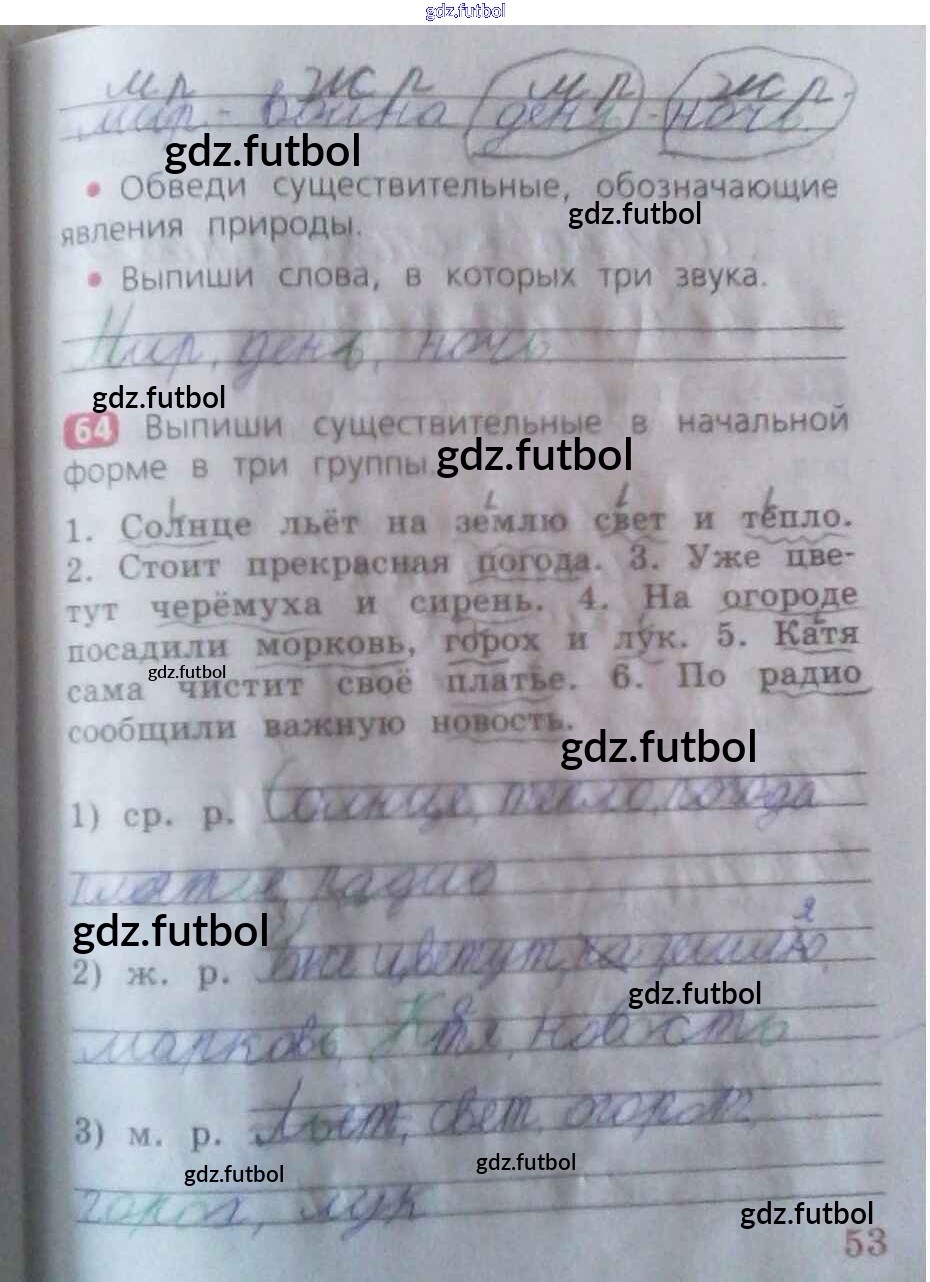 gdz.futbol
м р ж р м р ж р.
мир - война день - ночь.
gdz.futbol
• Обведи существительные, обозначающие
gdz.futbol
явления природы.
• Выпиши слова, в которых три звука.
Мир, день, ночь
gdz.futbol
64 Выпиши существительные в начальной
форме в три группы.
gdz.futbol
1. Солнце льёт на землю свет и тепло.
2. Стоит прекрасная погода. 3. Уже цве-
тут черёмуха и сирень. 4. На огороде
посадили морковь, горох и лук. 5. Катя
gdz.futbol
сама чистит своё платье. 6. По радио
сообщили важную новость.
gdz.futbol
1) ср. р. Солнце, тепло, погода
платье, радио
gdz.futbol
я
2) ж. р. Уже цветут, на землю,
gdz.futbol
марковь, Катя, новость
3) м. р. Льёт, свет, огород,
gdz.futbol
gdz.futbol
горох, лук
gdz.futbol
53